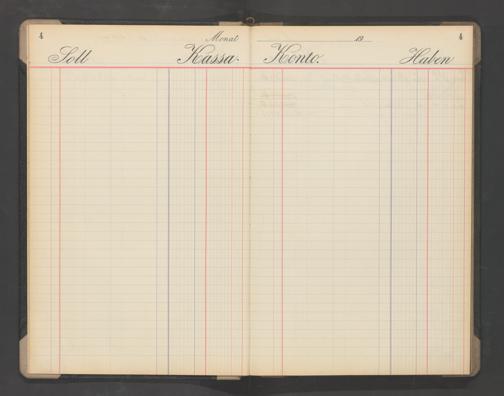 4 Monat 19 4
Soll Kassa- Konto. Haben